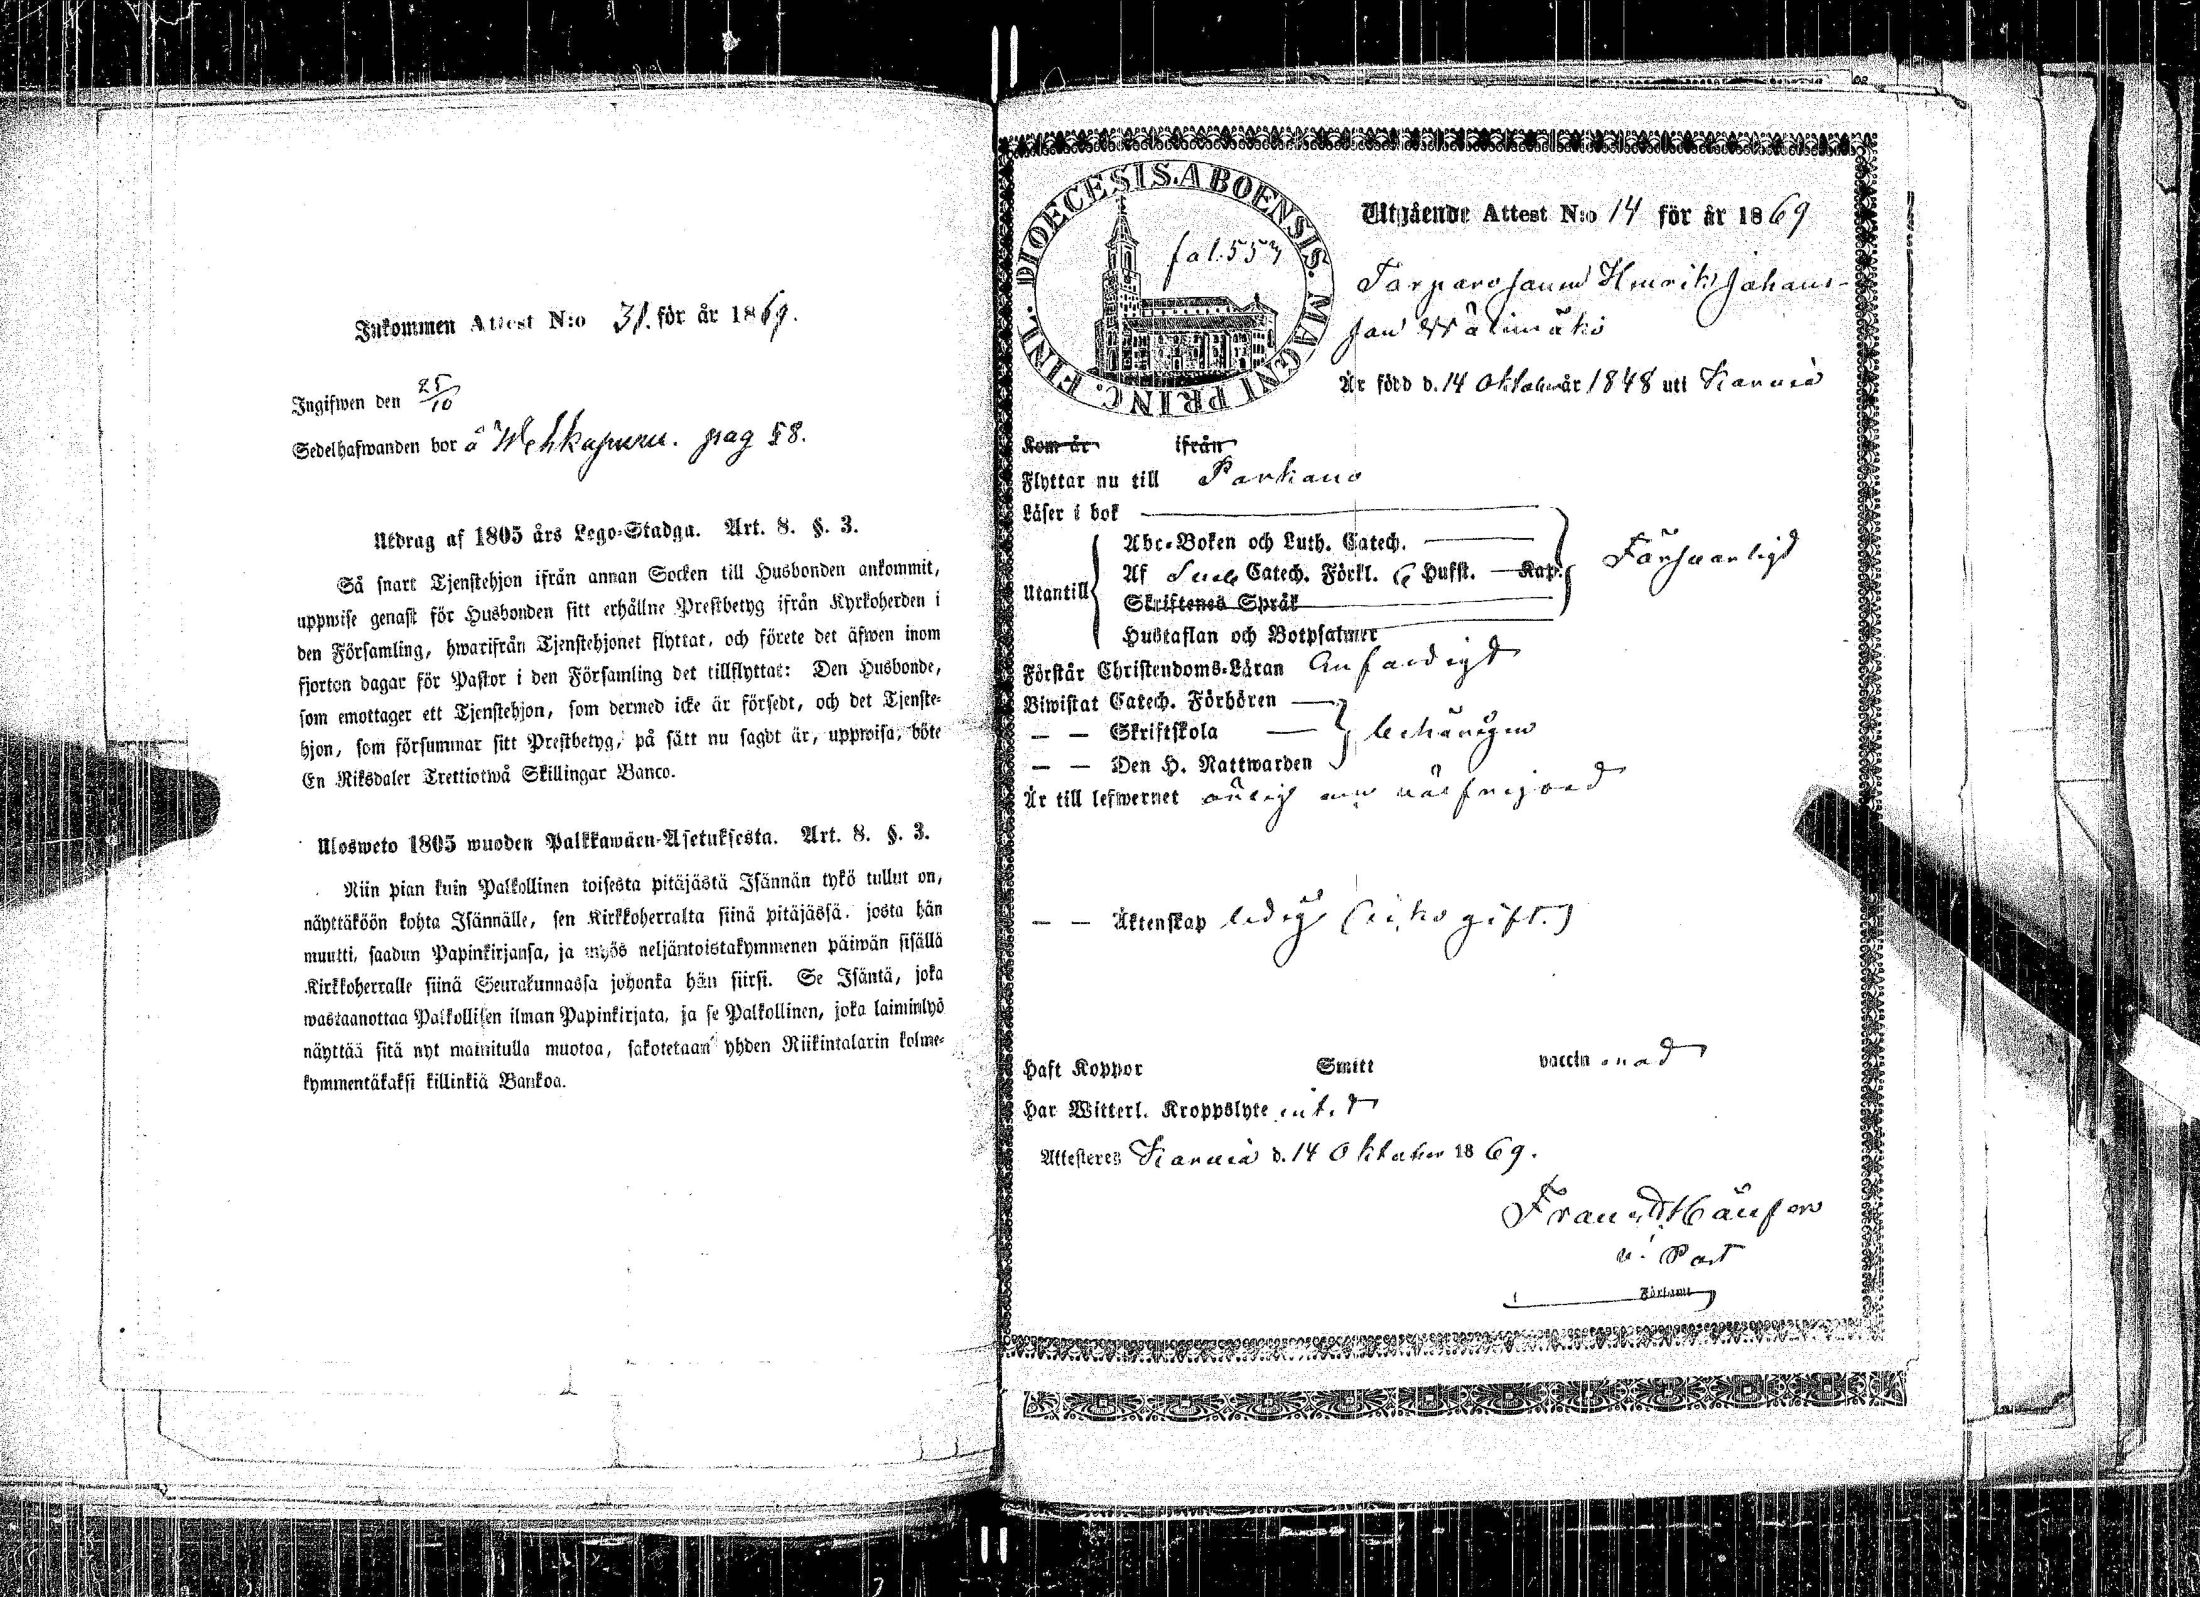 Inkommen Attest N:o 31. för år 1869.
Ingifwen den 25/10
Sedelhafwanden bor å Wehkapuru. pag 58.
Utdrag af 1805 års Lego-Stadga. Art. 8. §. 3.
Så snart Tjenstehjon ifrån annan Socken till Husbonden ankommit,
uppwise genast för Husbonden sitt erhållne Prestbetyg ifrån Kyrkoherden i
den Församling, hwarifrån Tjenstehjonet flyttat, och förete det äfwen inom
fjorton dagar för Pastor i den Församling det tillflyttat: Den Husbonde,
som emottager ett Tjenstehjon, som dermed icke är försedt, och det Tjenste-
hjon, som försummar sitt Prestbetyg, på sätt nu sagdt är, uppwisa, böte
En Riksdaler Trettiotwå Skillingar Banco.
Ulosweto 1805 wuoden Palkkawäen-Asetuksesta. Art. 8. §. 3.
Niin pian kuin Palkollinen toisesta pitäjästä Isännän tykö tullut on,
näyttäköön kohta Isännälle, sen Kirkkoherralta siinä pitäjässä, josta hän
muutti, saadun Papinkirjansa, ja myös neljäntoistakymmenen päiwän sisällä
Kirkkoherralle siinä Seurakunnassa johonka hän siirsi. Se Isäntä, joka
wastaanottaa Palkollisen ilman Papinkirjata, ja se Palkollinen, joka laiminlyö
näyttää sitä nyt mainitulla muotoa, sakotetaan yhden Riikintalarin kolme-
kymmentäkaksi killinkiä Bankoa.
DIOECESIS. ABOENSIS. MAGNI PRINC. FINL.
fol. 557
Utgående Attest N:o 14 för år 1869
Torparesonen Henrik Johans-
son Wälimäki
Är född d. 14 Oktober år 1848 uti Karvia
Kom år ifrån
Flyttar nu till Parkano
Läser i bok
Abc-Boken och Luth. Catech.
Utantill Af Sveb. Catech. Förkl. 6 Hufst. Kap. Försvarligt
Skriftenes Språk
Hustaflan och Botpsalmer
Förstår Christendoms-Läran Enfaldigt
Biwistat Catech. Förhören
— — Skriftskola behörigen
— — Den H. Nattwarden
Är till lefwernet ärlig och välfrejdad
— — Äktenskap ledig (icke gift.)
Haft Koppor Smitt vaccinerad
Har Witterl. Kroppslyte intet
Attesteres Karvia d. 14 Oktober 1869.
v. Past
Församl.